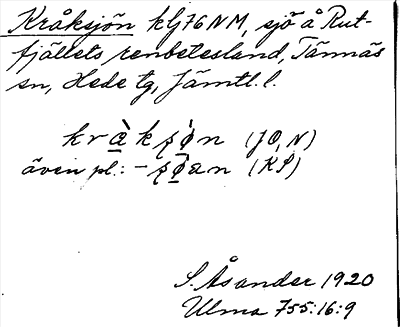 Kråksjön kG76NM, sjö å Rut-
fjällets renbetesland, Tännäs
sn, Hede tg, Jämtl. l.
kràkʂøn (JO, N)
även pl.: -ʂøan (KP)
S. Åsander 1920
Ulma 755:16:9